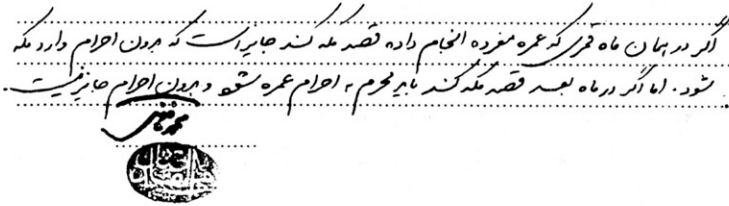 اگر در همان ماه قمری که عمره مفرده انجام داده قصد مکه کند جایز است که بدون احرام وارد مکه
شود. اما اگر در ماه بعد قصد مکه کند باید محرم به احرام عمره شود و بدون احرام جایز نیست.